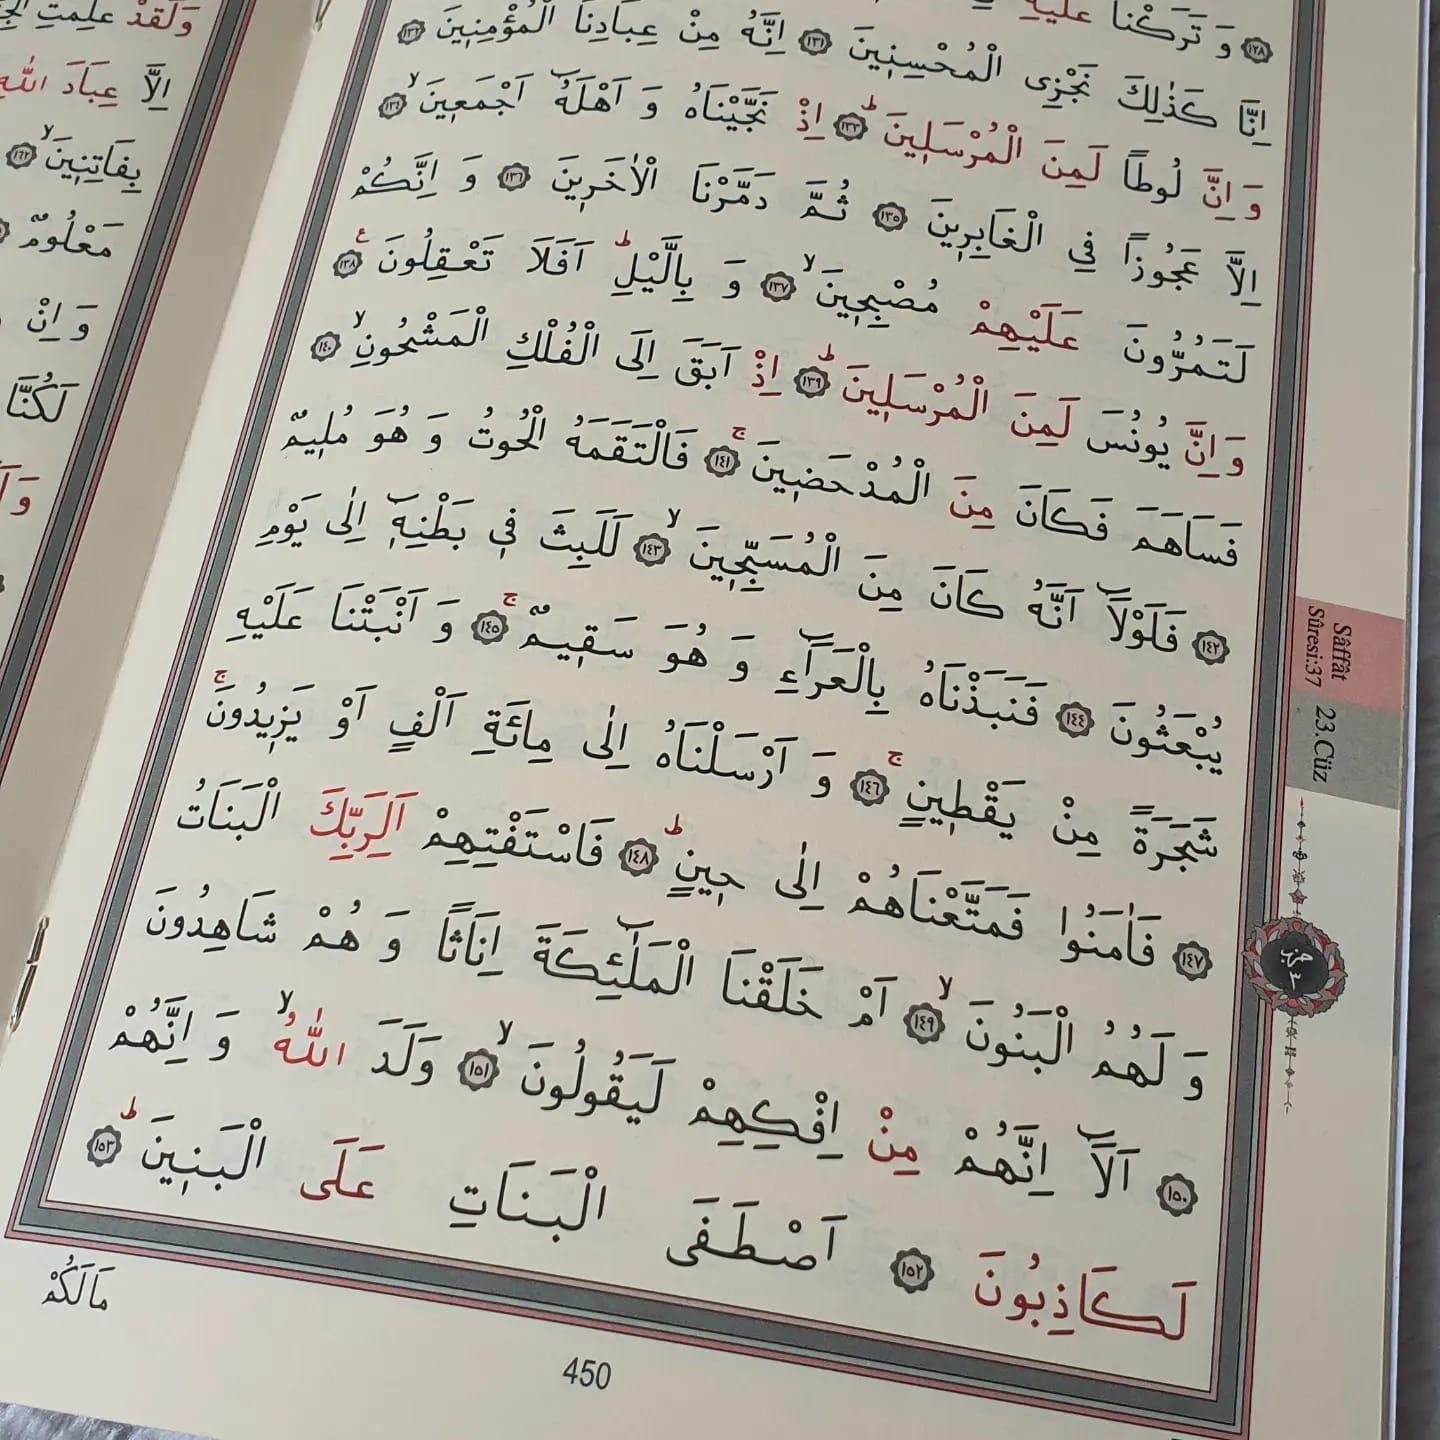 ﴿١٢٨﴾ وَ تَرَكْنَا عَلَيْهِ
اِنَّا كَذٰلِكَ نَجْزِى الْمُحْسِنٖينَ ﴿١٣١﴾ اِنَّهُ مِنْ عِبَادِنَا الْمُؤْمِنٖينَ ﴿١٣٢﴾
وَ اِنَّ لُوطًا لَمِنَ الْمُرْسَلٖينَ ؕ ﴿١٣٣﴾ اِذْ نَجَّيْنَاهُ وَ اَهْلَهُٓ اَجْمَعٖينَ ۙ ﴿١٣٤﴾
اِلَّا عَجُوزًا فِي الْغَابِرٖينَ ﴿١٣٥﴾ ثُمَّ دَمَّرْنَا الْاٰخَرٖينَ ﴿١٣٦﴾ وَ اِنَّكُمْ
لَتَمُرُّونَ عَلَيْهِمْ مُصْبِحٖينَ ۙ ﴿١٣٧﴾ وَ بِالَّيْلِ ؕ اَفَلَا تَعْقِلُونَ ع ﴿١٣٨﴾
وَ اِنَّ يُونُسَ لَمِنَ الْمُرْسَلٖينَ ؕ ﴿١٣٩﴾ اِذْ اَبَقَ اِلَى الْفُلْكِ الْمَشْحُونِ ۙ ﴿١٤٠﴾
فَسَاهَمَ فَكَانَ مِنَ الْمُدْحَضٖينَ ۚ ﴿١٤١﴾ فَالْتَقَمَهُ الْحُوتُ وَ هُوَ مُلٖيمٌ
﴿١٤٢﴾ فَلَوْلَٓا اَنَّهُ كَانَ مِنَ الْمُسَبِّحٖينَ ۙ ﴿١٤٣﴾ لَلَبِثَ فٖي بَطْنِهٖٓ اِلٰى يَوْمِ
يُبْعَثُونَ ﴿١٤٤﴾ فَنَبَذْنَاهُ بِالْعَرَٓاءِ وَ هُوَ سَقٖيمٌ ۚ ﴿١٤٥﴾ وَ اَنْبَتْنَا عَلَيْهِ
شَجَرَةً مِنْ يَقْطٖينٍ ۚ ﴿١٤٦﴾ وَ اَرْسَلْنَاهُ اِلٰى مِائَةِ اَلْفٍ اَوْ يَزٖيدُونَ ۚ
﴿١٤٧﴾ فَاٰمَنُوا فَمَتَّعْنَاهُمْ اِلٰى حٖينٍ ؕ ﴿١٤٨﴾ فَاسْتَفْتِهِمْ اَلِرَبِّكَ الْبَنَاتُ
وَ لَهُمُ الْبَنُونَ ۙ ﴿١٤٩﴾ اَمْ خَلَقْنَا الْمَلٰٓئِكَةَ اِنَاثًا وَ هُمْ شَاهِدُونَ
﴿١٥٠﴾ اَلَٓا اِنَّهُمْ مِنْ اِفْكِهِمْ لَيَقُولُونَ ۙ ﴿١٥١﴾ وَلَدَ اللّٰهُ ۙ وَ اِنَّهُمْ
لَكَاذِبُونَ ﴿١٥٢﴾ اَصْطَفَى الْبَنَاتِ عَلَى الْبَنٖينَ ؕ ﴿١٥٣﴾
مَالَكُمْ
450
Sâffât
Sûresi:37
23.Cüz
حزب
٣
وَلَقَدْ عَلِمَتِ
اِلَّا عِبَادَ اللّٰهِ
بِفَاتِنٖينَ ۙ ﴿١٦٢﴾
مَعْلُومٌ
وَ اِنْ
لَكُنَّا